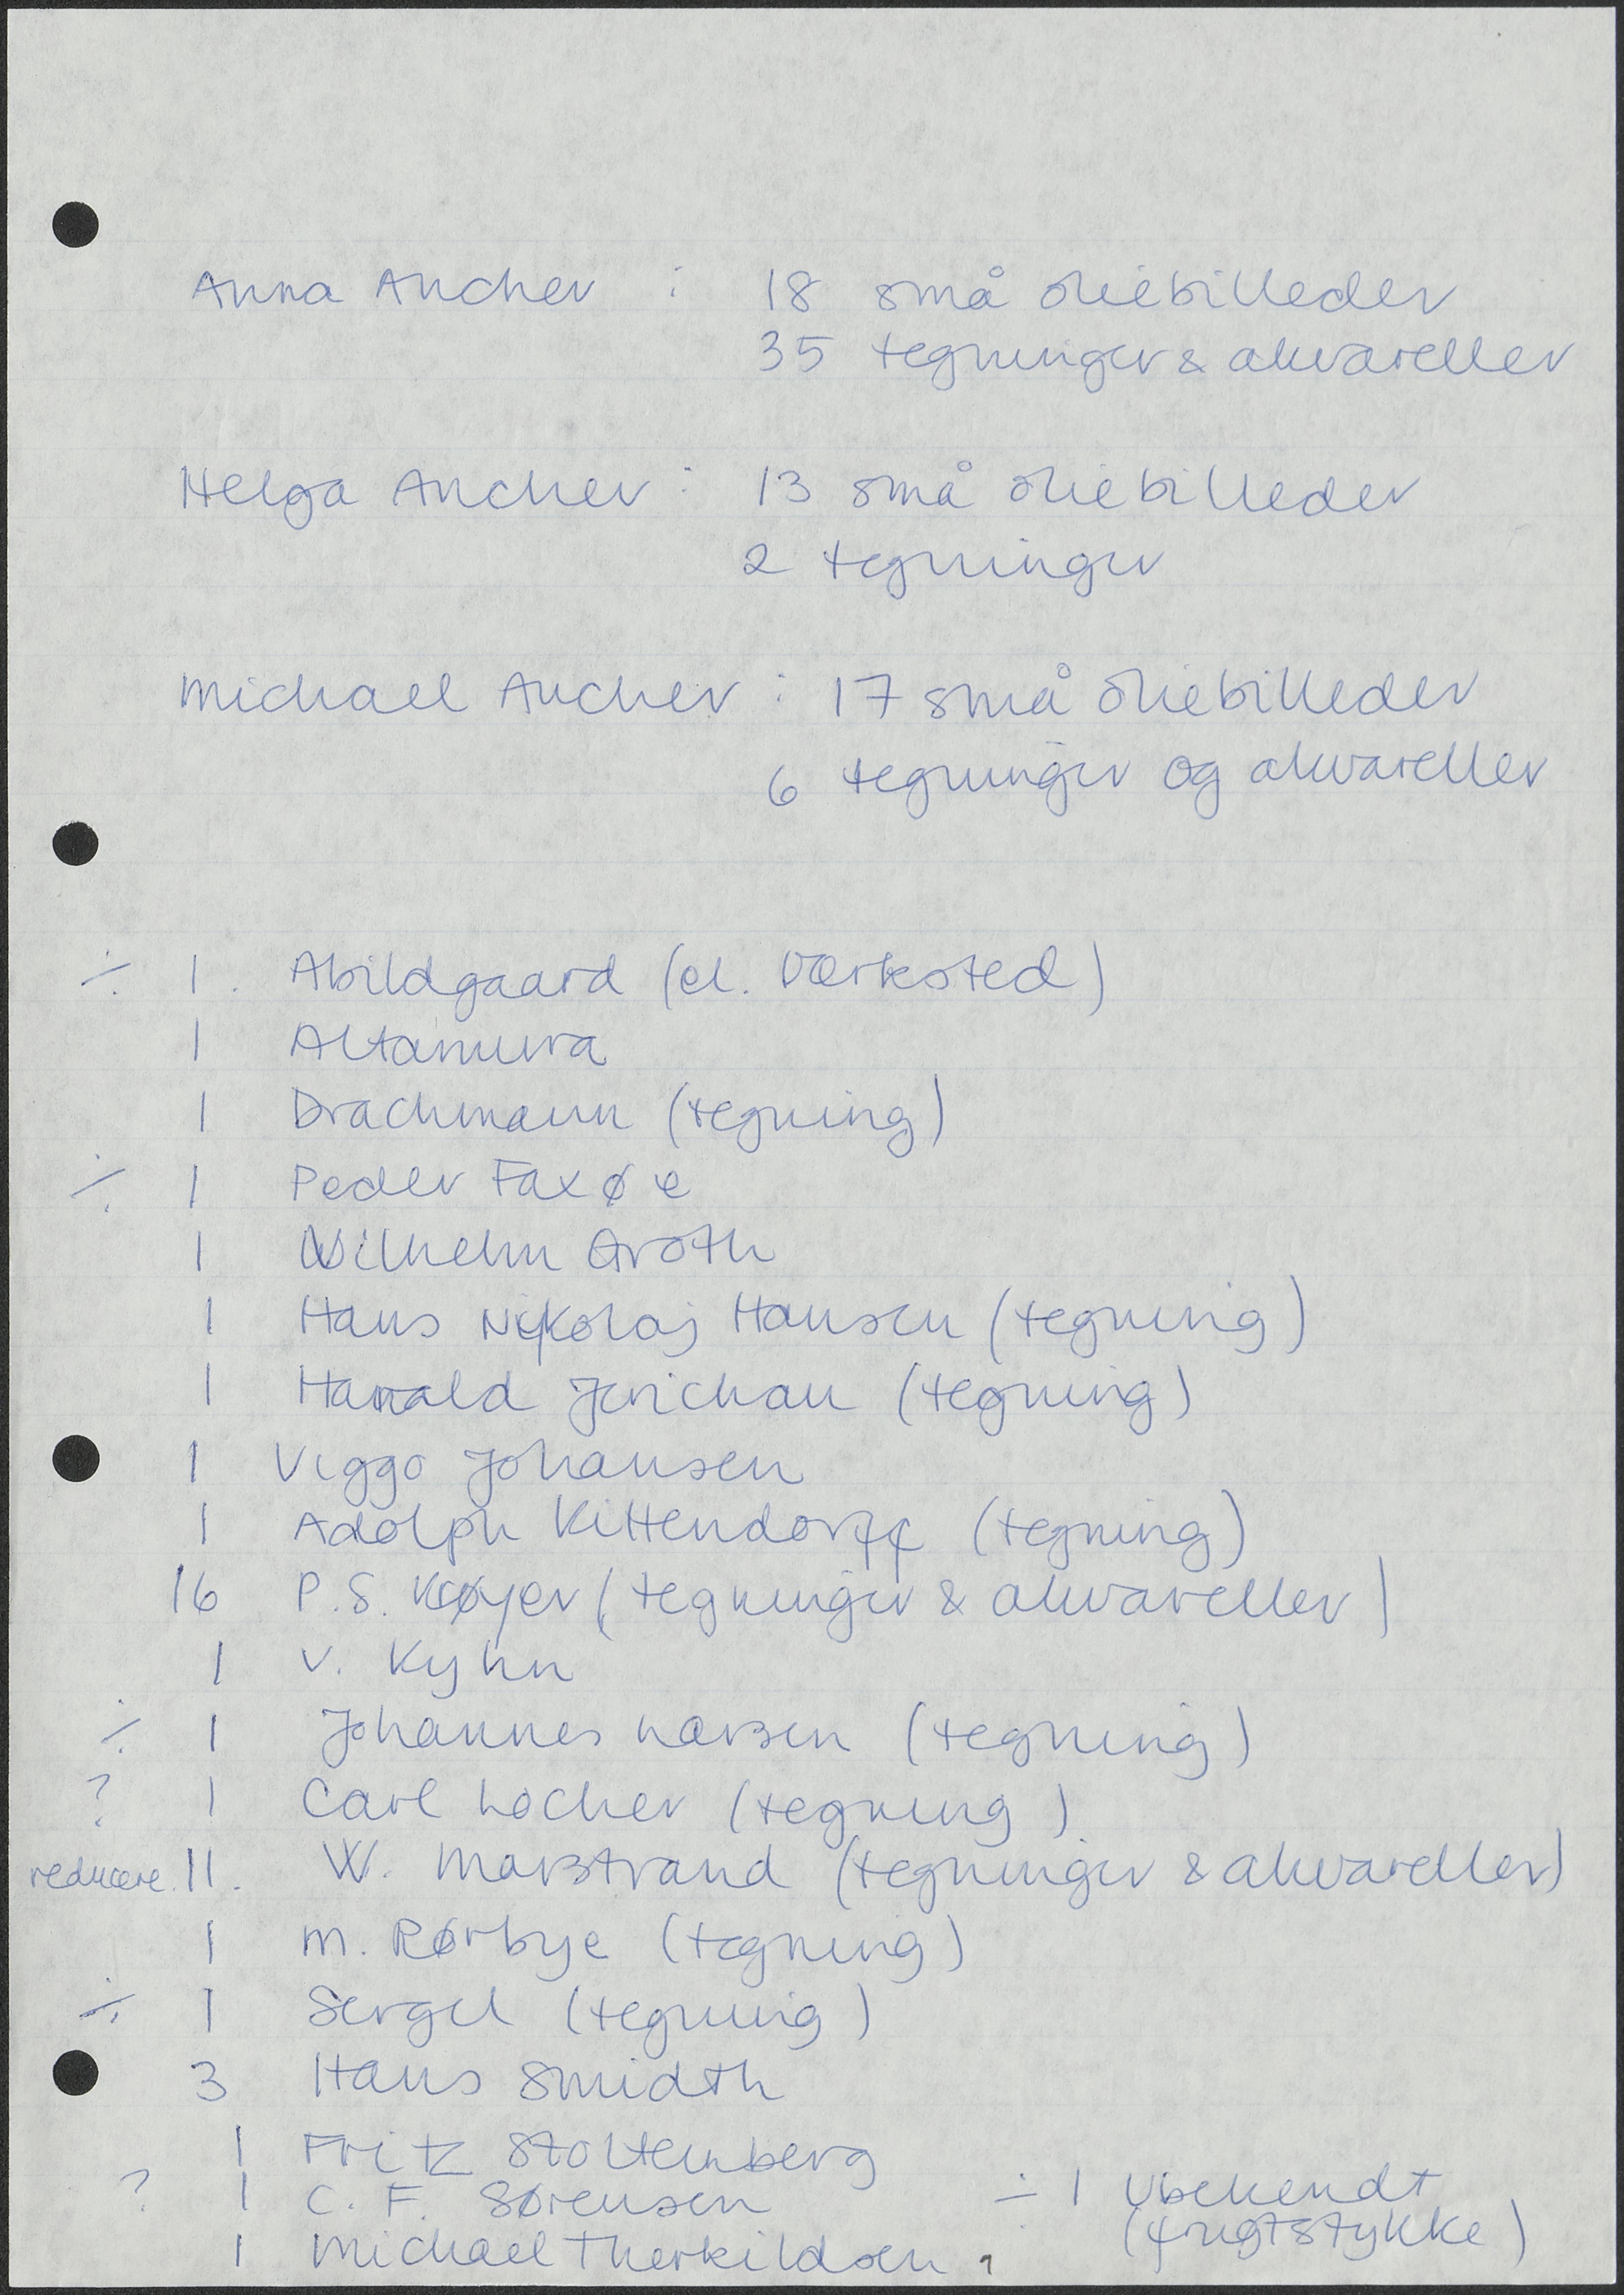 Anna Ancher : 18 små oliebilleder
35 tegninger & akvareller
Helga Ancher : 13 små oliebilleder
2 tegninger
Michael Ancher : 17 små oliebilleder
6 tegninger og akvareller
÷ 1. Abildgaard (el. værksted)
1 Altamura
1 Drachmann (tegning)
÷ 1 Peder Faxøe
1 Wilhelm Groth
1 Hans Nikolaj Hansen (tegning)
1 Harald Jerichau (tegning)
1 Viggo Johansen
1 Adolph Kittendorff (tegning)
16 P.S. Krøyer (tegninger & akvareller)
1 V. Kyhn
÷ 1 Johannes Larsen (tegning)
? 1 Carl Locher (tegning)
reducere 11. W. Marstrand (tegninger & akvareller)
1 M. Rørbye (tegning)
÷ 1 Sergel (tegning)
3 Hans Smidth
1 Fritz Stoltenberg
? 1 C. F. Sørensen
1 Michael Therkildsen
÷ 1 Ubekendt
(frugtstykke)